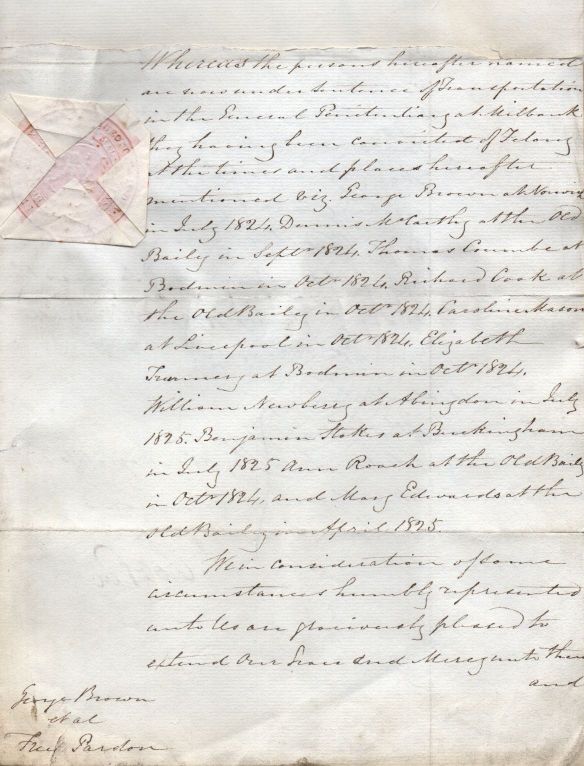 Whereas the persons hereafter named
are now under sentence of Transportation
in the General Penitentiary at Milbank
they having been convicted of Felony
at the times and places hereafter
mentioned viz. George Brown at
in July 1824, Dennis McCarthy at the Old
Baily in Septr. 1824, Thomas Coumbe at
Bodmin in Octr. 1824, Richard Cook at
the Old Bailey in Octr. 1824, Caroline Mason
at Liverpool in Octr. 1824, Elizabeth
at Bodmin in Octr. 1824,
William Newbery at Abingdon in July
1825. Benjamin Stokes at Buckingham
in July 1825 Ann Roach at the Old Baily
in Octr. 1824, and Mary Edwards at the
Old Bailey in April 1825.
We in consideration of some
circumstances humbly represented
unto Us are graciously pleased to
extend Our Grace and Mercy unto them
and
George Brown
et al
Free Pardon